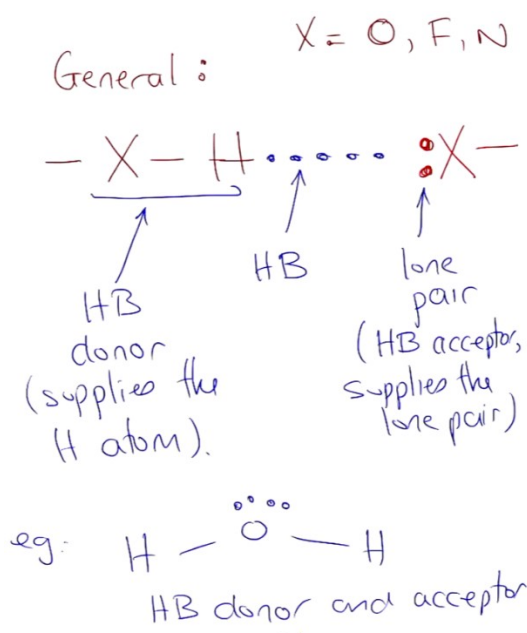 X = O, F, N
General:
— X — H ····· :X —
HB
donor
(supplies the
H atom).
HB
lone
pair
(HB acceptor,
supplies the
lone pair)
eg:
H — O — H
HB donor and acceptor